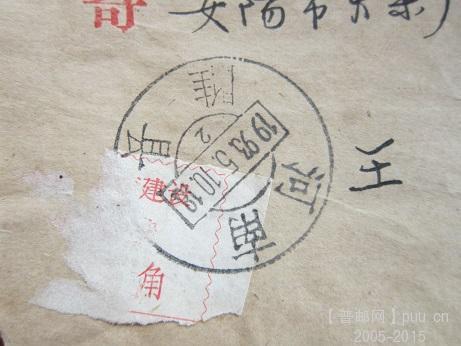 寄 安阳市
河南
睢县
1993.5.10.19
2
王
建设
角
【普邮网】puu cn
2005-2015